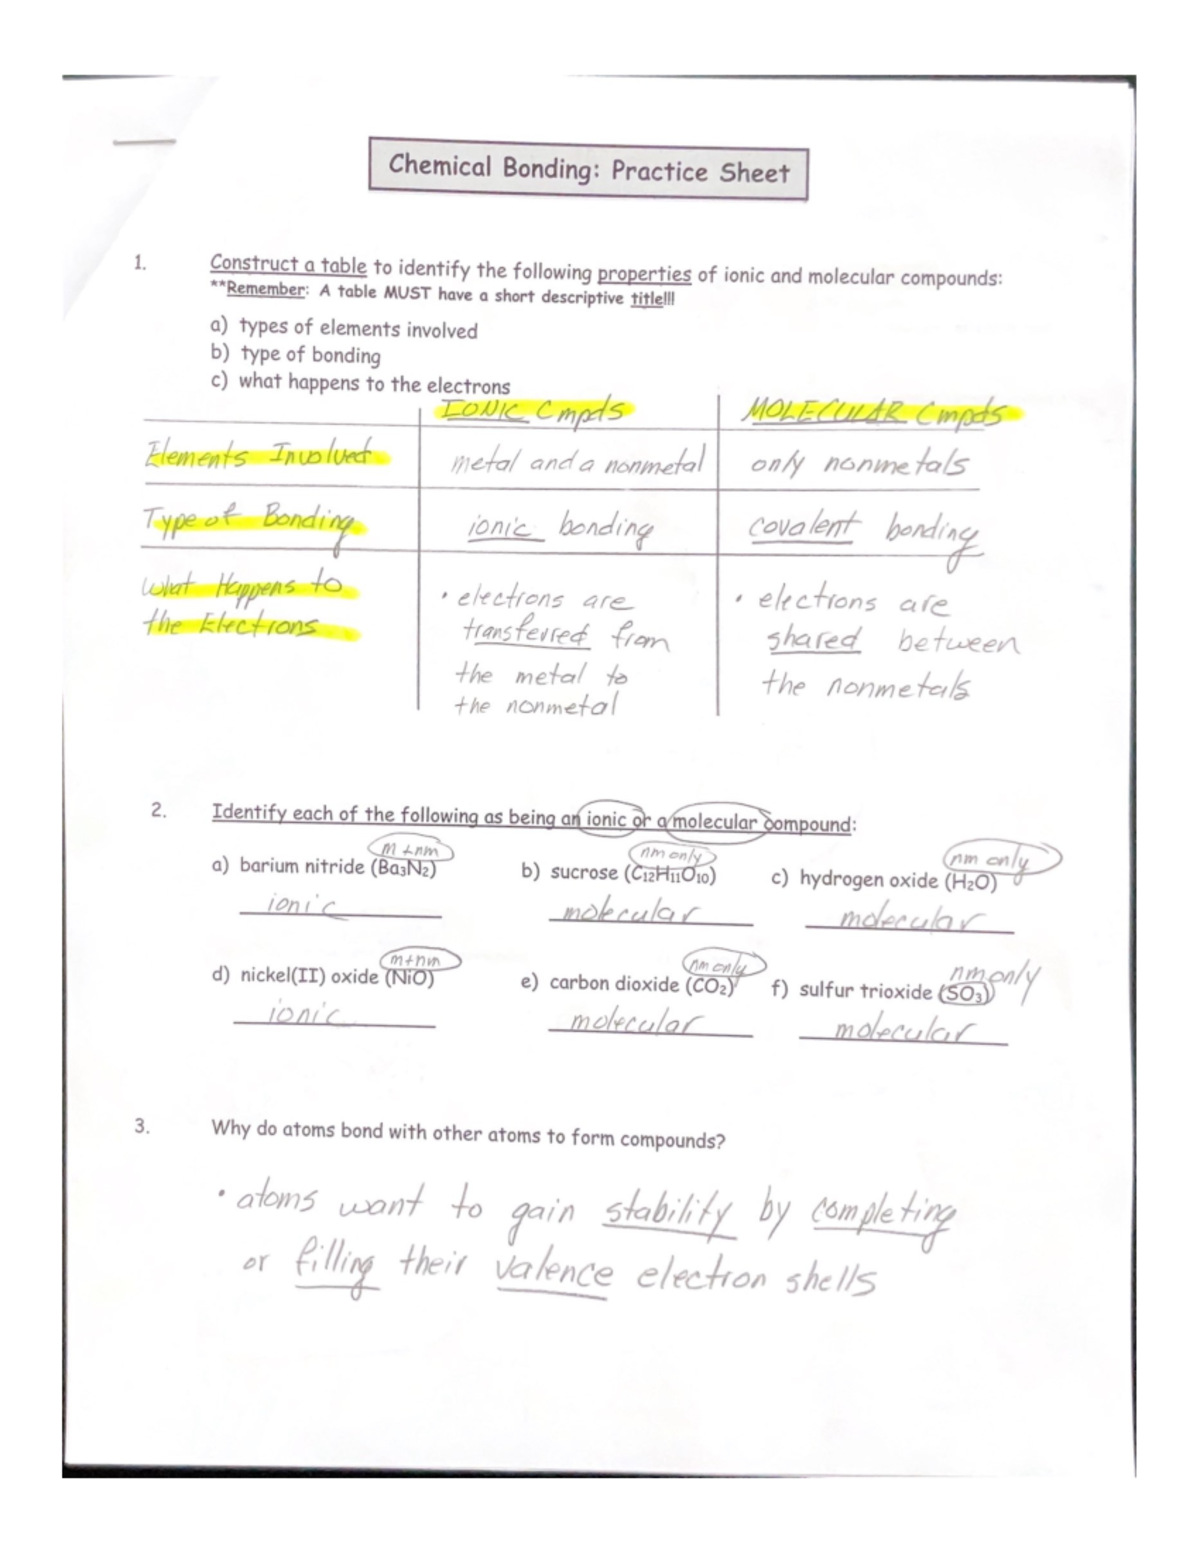 Chemical Bonding: Practice Sheet
1. Construct a table to identify the following properties of ionic and molecular compounds:
**Remember: A table MUST have a short descriptive title!!!
a) types of elements involved
b) type of bonding
c) what happens to the electrons
IONIC Cmpds MOLECULAR Cmpds
Elements Involved metal and a nonmetal only nonmetals
Type of Bonding ionic bonding covalent bonding
What Happens to • electrons are • electrons are
the Electrons transferred from shared between
the metal to the nonmetals
the nonmetal
2. Identify each of the following as being an ionic or a molecular compound:
m+nm nm only nm only
a) barium nitride (Ba3N2) b) sucrose (C12H11O10) c) hydrogen oxide (H2O)
ionic molecular molecular
m+nm nm only nm only
d) nickel(II) oxide (NiO) e) carbon dioxide (CO2) f) sulfur trioxide (SO3)
ionic molecular molecular
3. Why do atoms bond with other atoms to form compounds?
• atoms want to gain stability by completing
or filling their valence electron shells